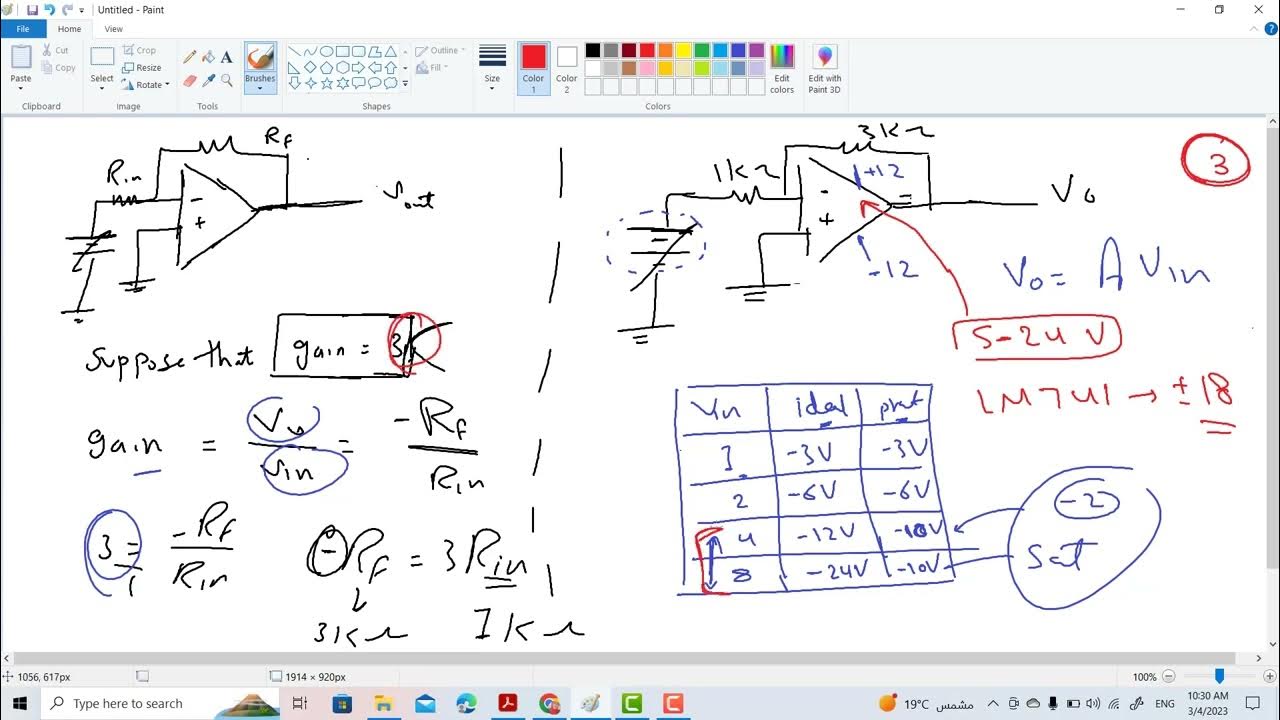 Untitled - Paint
File Home View
Paste Cut Copy Clipboard
Select Crop Resize Rotate Image
Tools
Brushes
Outline Fill Shapes
Size
Color 1 Color 2 Edit colors Colors
Edit with Paint 3D
Rin
RF
-
+
Vout
suppose that gain = 3
gain = Vo/Vin = -RF/Rin
3/1 = -RF/Rin
-RF = 3 Rin
3KΩ 1KΩ
1KΩ
3KΩ
+12
-
+
-12
Vo
3
Vo = A Vin
5-24 V
LM741 → ±18
Vin ideal prat
1 -3V -3V
2 -6V -6V
4 -12V -10V
8 -24V -10V
-2
Sat
1056, 617px
1914 × 920px
100%
Type here to search
19°C مشمس
ENG
10:30 AM
3/4/2023